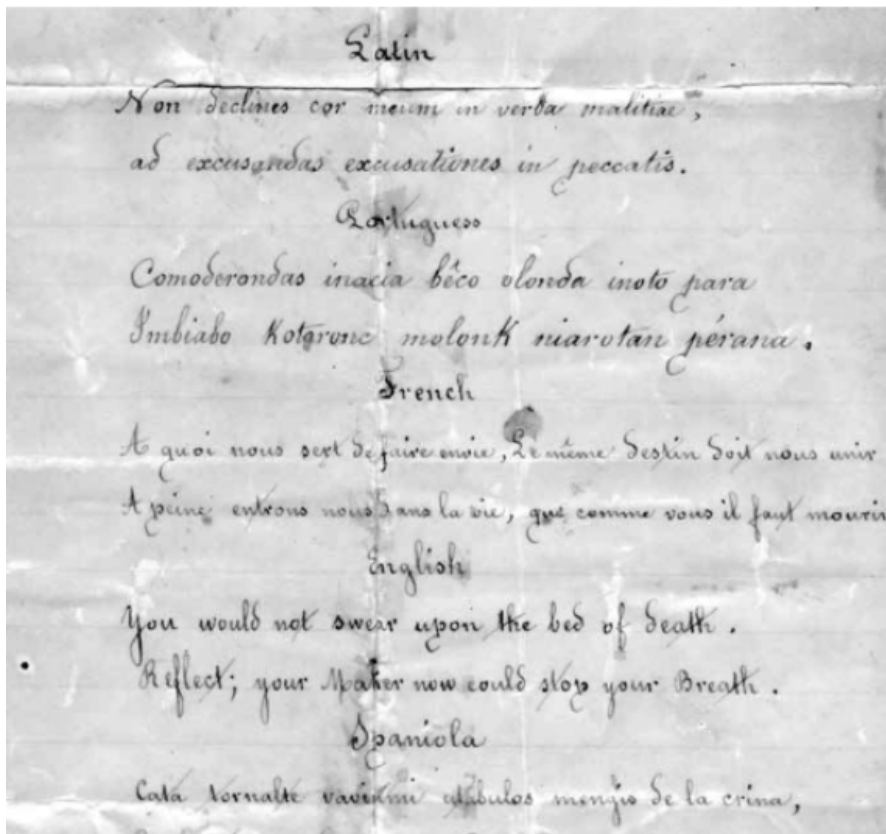 Latin
Non declines cor meum in verba malitiae,
ad excusandas excusationes in peccatis.
Portuguess
Comoderondas inacia bêco olonda inoto para
Imbiabo Kotgronc molonk niarotan pérana.
French
A quoi nous sert de faire envie, Le même destin doit nous unir
A peine entrons nous dans la vie, que comme vous il faut mourir
English
You would not swear upon the bed of death.
Reflect; your Maker now could stop your Breath.
Spaniola
Cata tornalte vavinmi utabulos mengis de la crina,